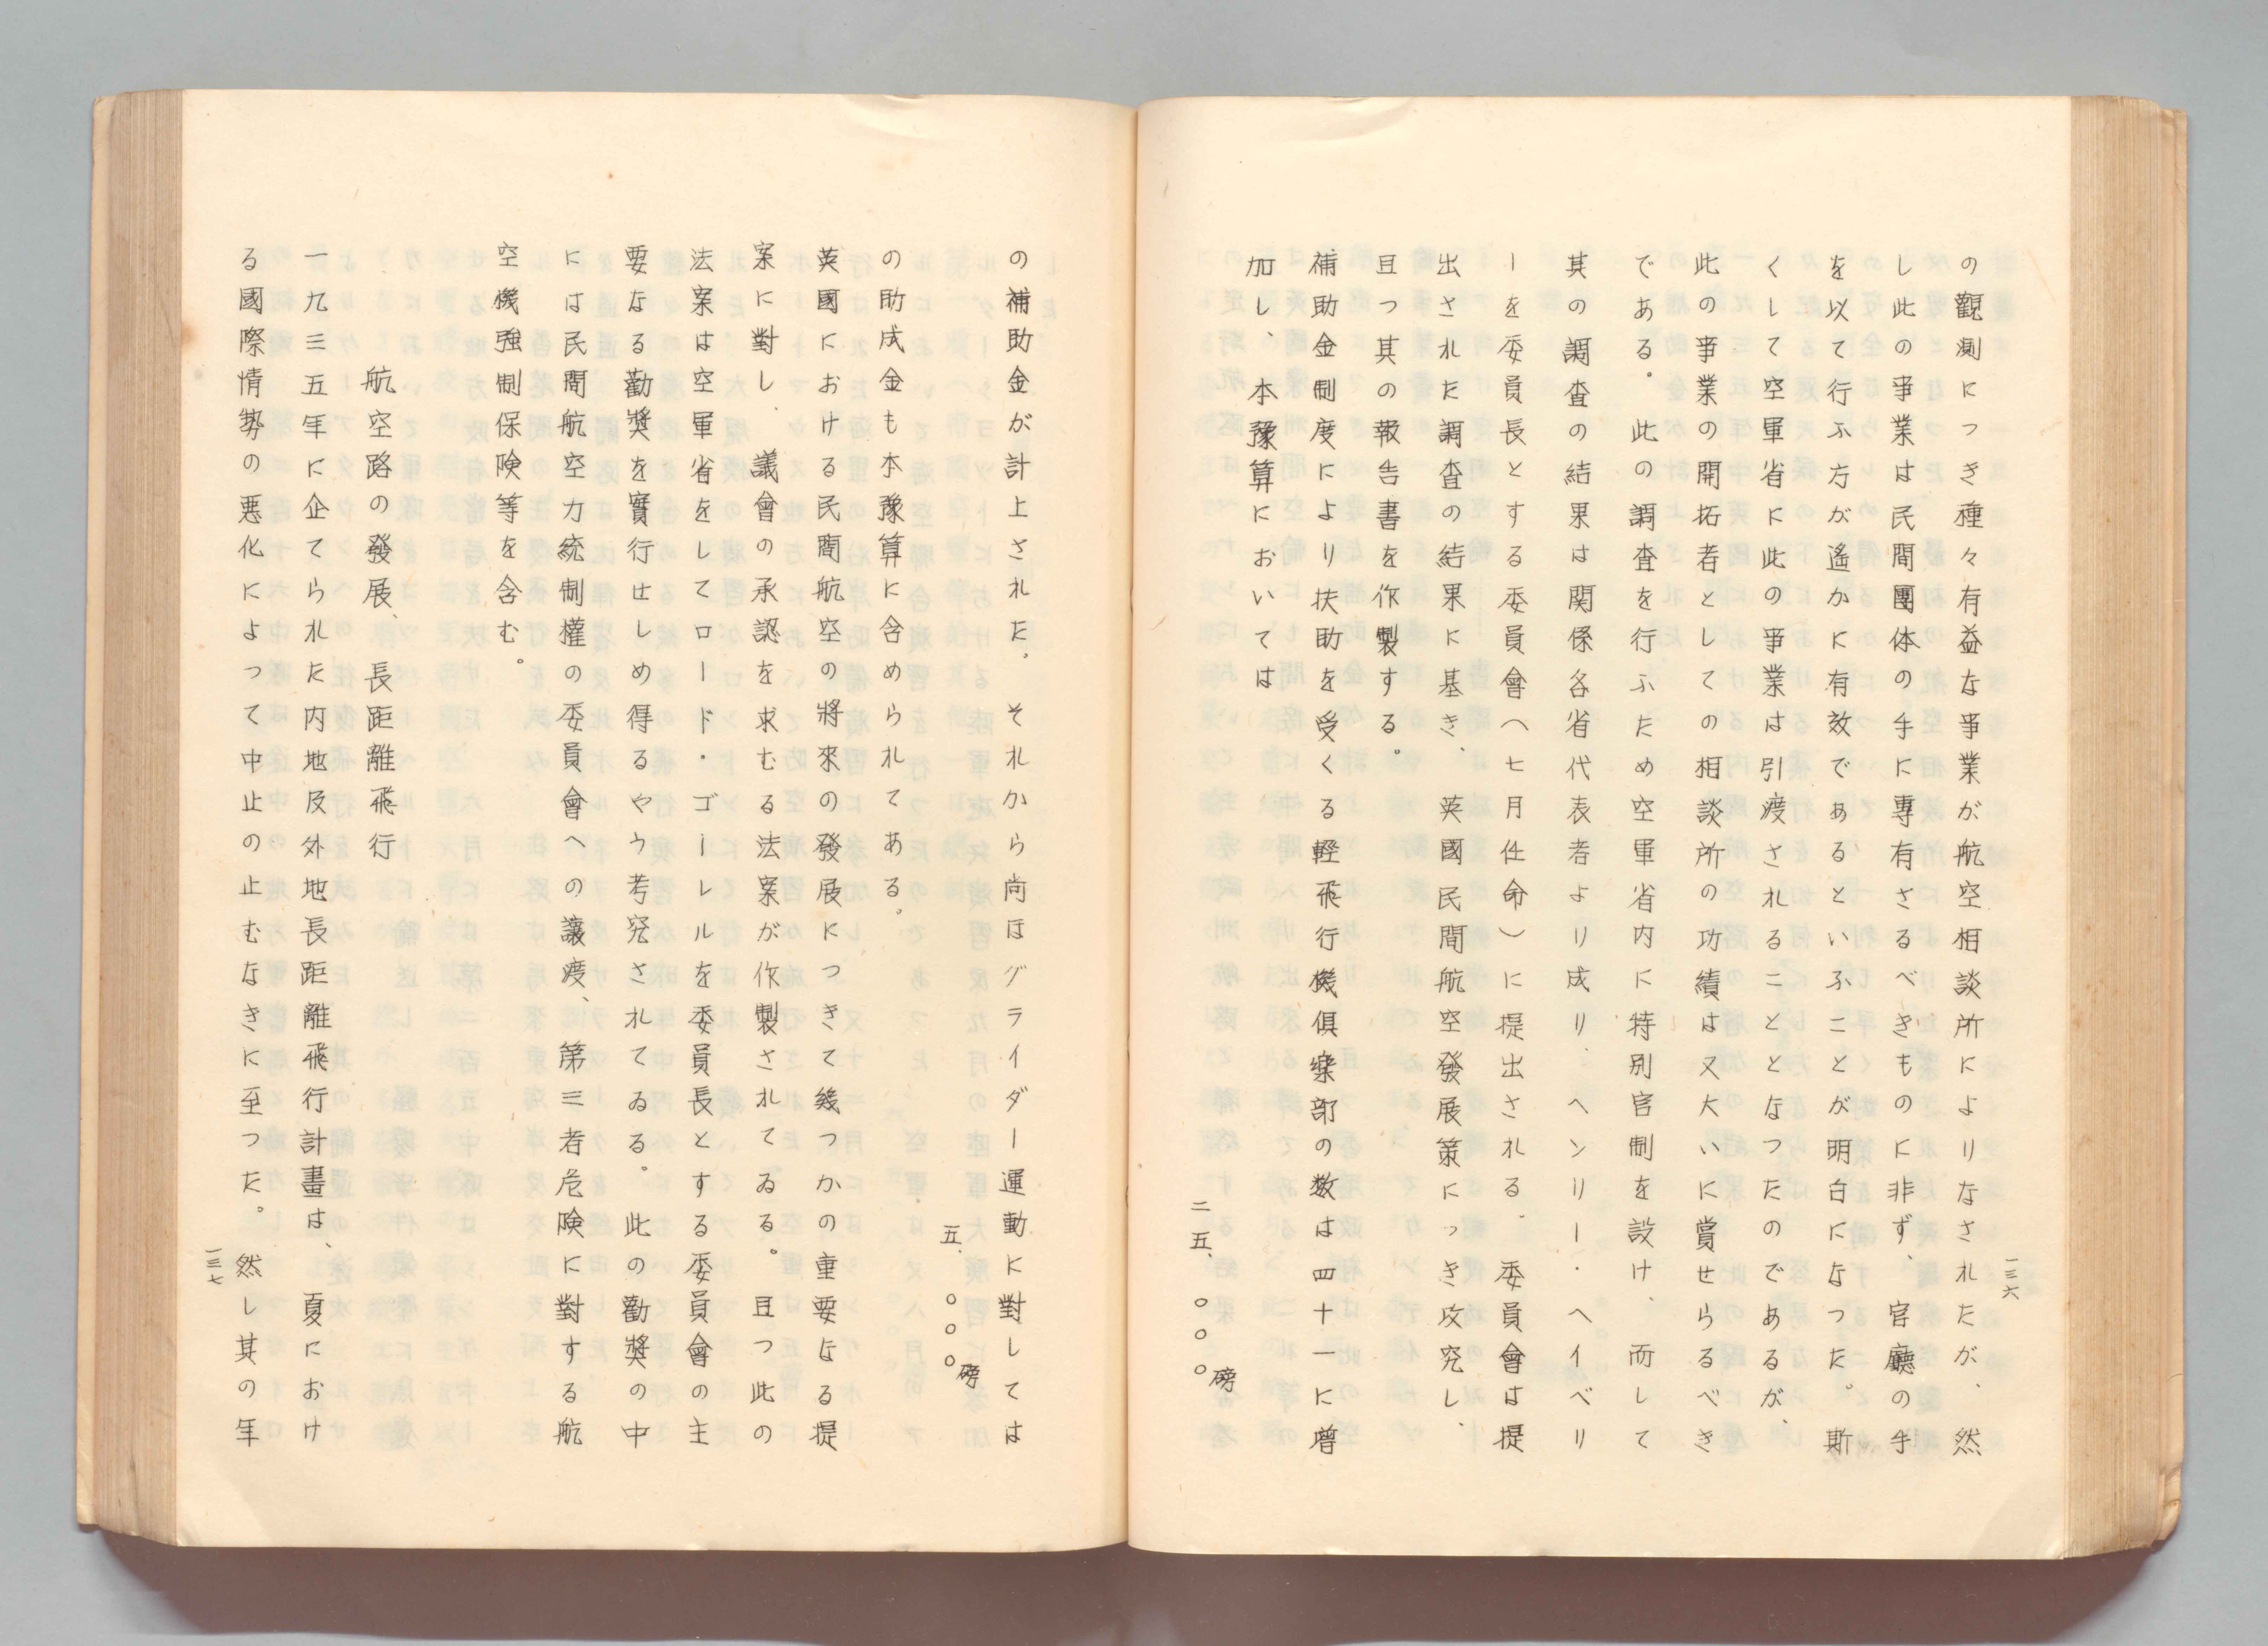 一三六
の觀測につき種々有益な事業が航空相談所によりなされたが、然
し此の事業は民間團体の手に專有さるべきものに非ず、官廳の手
を以て行ふ方が遙かに有效であるといふことが明白になつた。斯
くして空軍省に此の事業は引渡されることとなつたのであるが、
此の事業の開拓者としての相談所の功績は又大いに賞せらるべき
である。此の調査を行ふため空軍省内に特別官制を設け、而して
其の調査の結果は関係各省代表者より成り、ヘンリー・ヘイベリ
ーを委員長とする委員會へ七月任命)に提出される。委員會は提
出された調査の結果に基き、英國民間航空發展策につき攻究し、
且つ其の報告書を作製する。
補助金制度により扶助を受くる軽飛行機俱楽部の数は四十一に增
加し、本豫算においては
二五、〇〇〇磅
の補助金が計上された。それから尚ほグライダー運動に對しては
五、〇〇〇磅
の助成金も本豫算に含められてある。
英國における民間航空の將來の發展につきて幾つかの重要なる提
案に對し、議會の承認を求むる法案が作製されてゐる。且つ此の
法案は空軍省をしてロード・ゴーレルを委員長とする委員會の主
要なる勸奬を實行せしめ得るやう考究されてゐる。此の勸奬の中
には民間航空力統制權の委員會への讓渡、第三者危険に對する航
空機強制保険等を含む。
航空路の發展、長距離飛行
一九三五年に企てられた内地及外地長距離飛行計畫は、夏におけ
る國際情勢の悪化によって中止の止むなきに至つた。然し其の年
一三七